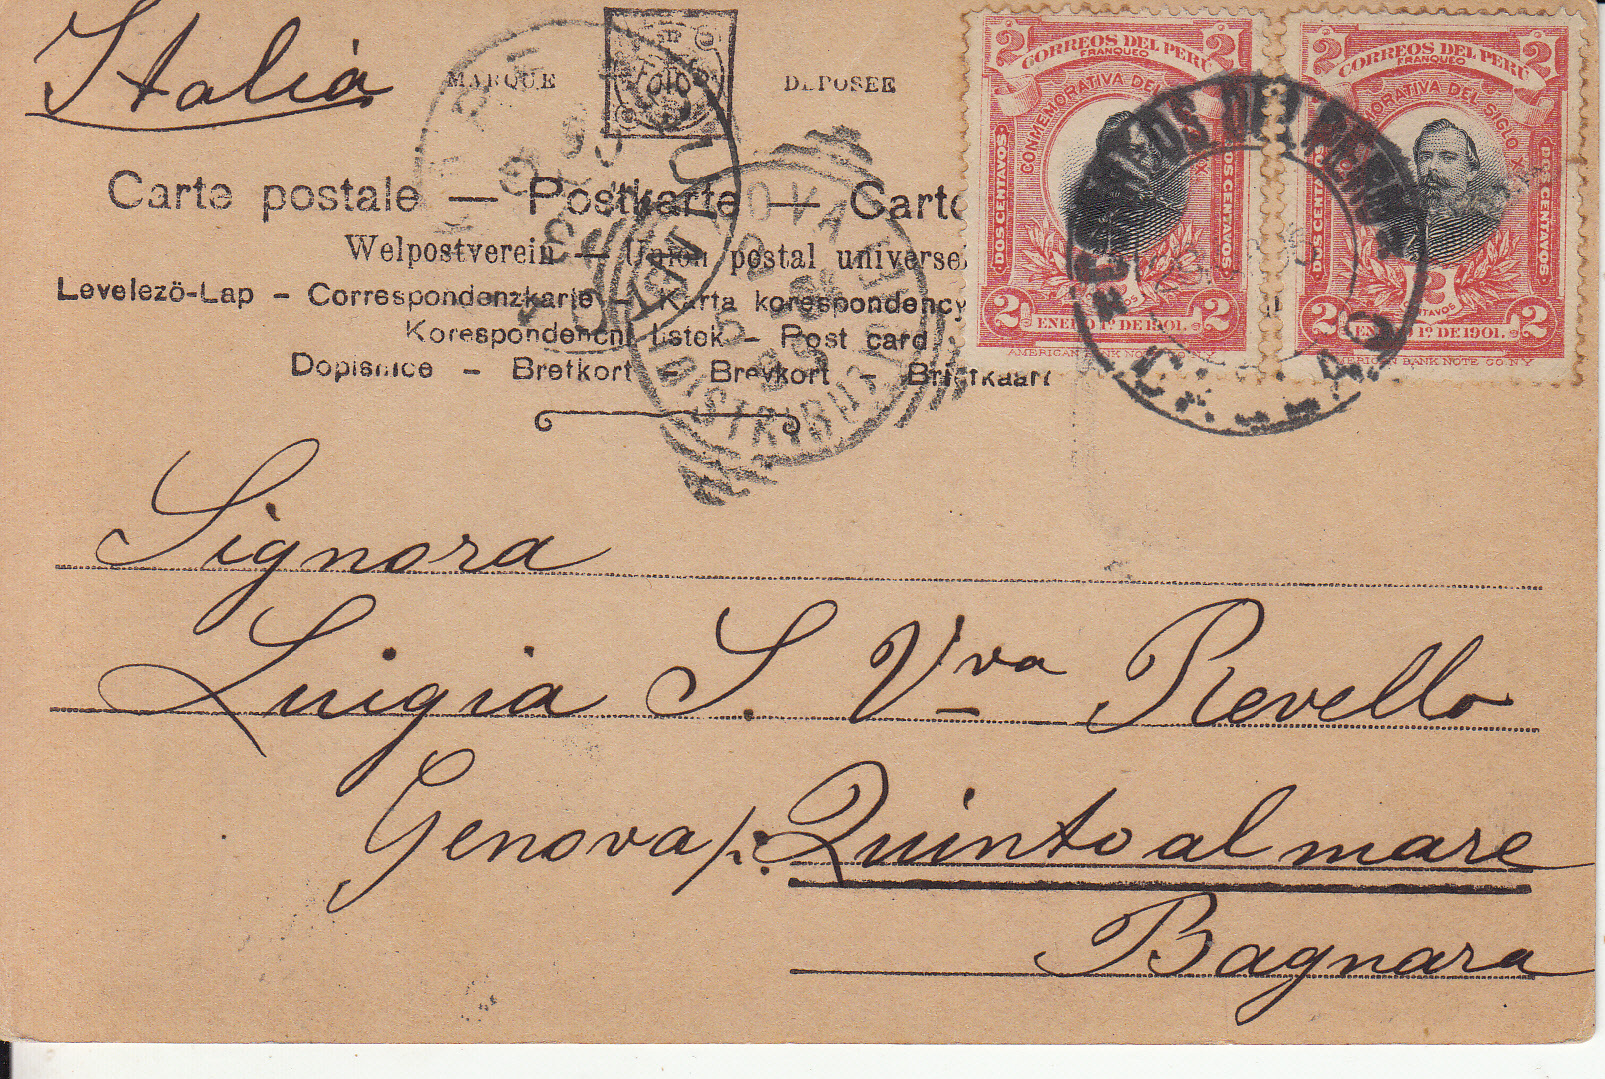 Italia
MARQUE DEPOSÉE
Carte postale — Postkarte — Carto
Welpostverein — Union postal universel
Levelezö-Lap – Correspondenzkarte – Karta korespondency
Korespondencni listek – Post card
Dopisnice – Brefkort – Brevkort – Briefkaart
2 CORREOS DEL PERU 2
FRANQUEO
CONMEMORATIVA DEL
DOS CENTAVOS
DOS CENTAVOS
2 ENERO 1º DE 1901. 2
AMERICAN BANK NOTE
2 CORREOS DEL PERU 2
FRANQUEO
CONMEMORATIVA DEL SIGLO XX
DOS CENTAVOS
DOS CENTAVOS
2
2 1º DE 1901. 2
AMERICAN BANK NOTE CO. N.Y.
GENOVA
DISTRIBUZ
Signora
Luigia S. Vva Revello
Genova p. Quinto al mare
Bagnara